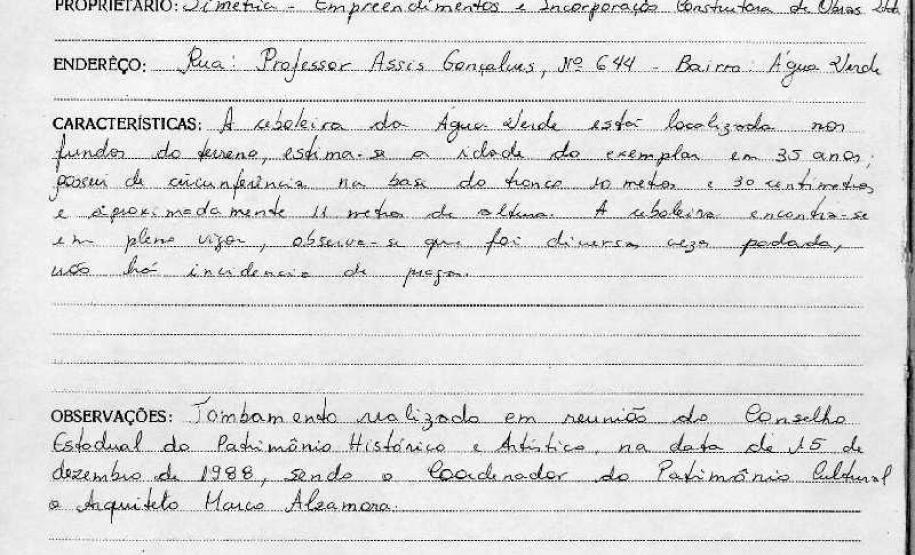 PROPRIETÁRIO: Simetria - Empreendimentos e Incorporação Construtora de Obras Ltda
ENDERÊÇO: Rua: Professor Assis Gonçalves, Nº 644 - Bairro: Água Verde
CARACTERÍSTICAS: A ceboleira da Água Verde está localizada nos
fundos do terreno, estima-se a idade do exemplar em 35 anos;
possui de circunferência na base do tronco 10 metros e 30 centimetros
e aproximadamente 11 metros de altura. A ceboleira encontra-se
em pleno vigor, observa-se que foi diversa veze podada,
não há incidencia de pragas.
OBSERVAÇÕES: Tombamento realizado em reunião do Conselho
Estadual do Patrimônio Histórico e Artístico, na data de 15 de
dezembro de 1988, sendo o Coordenador do Patrimônio Cultural
o Arquiteto Marco Alzamora.